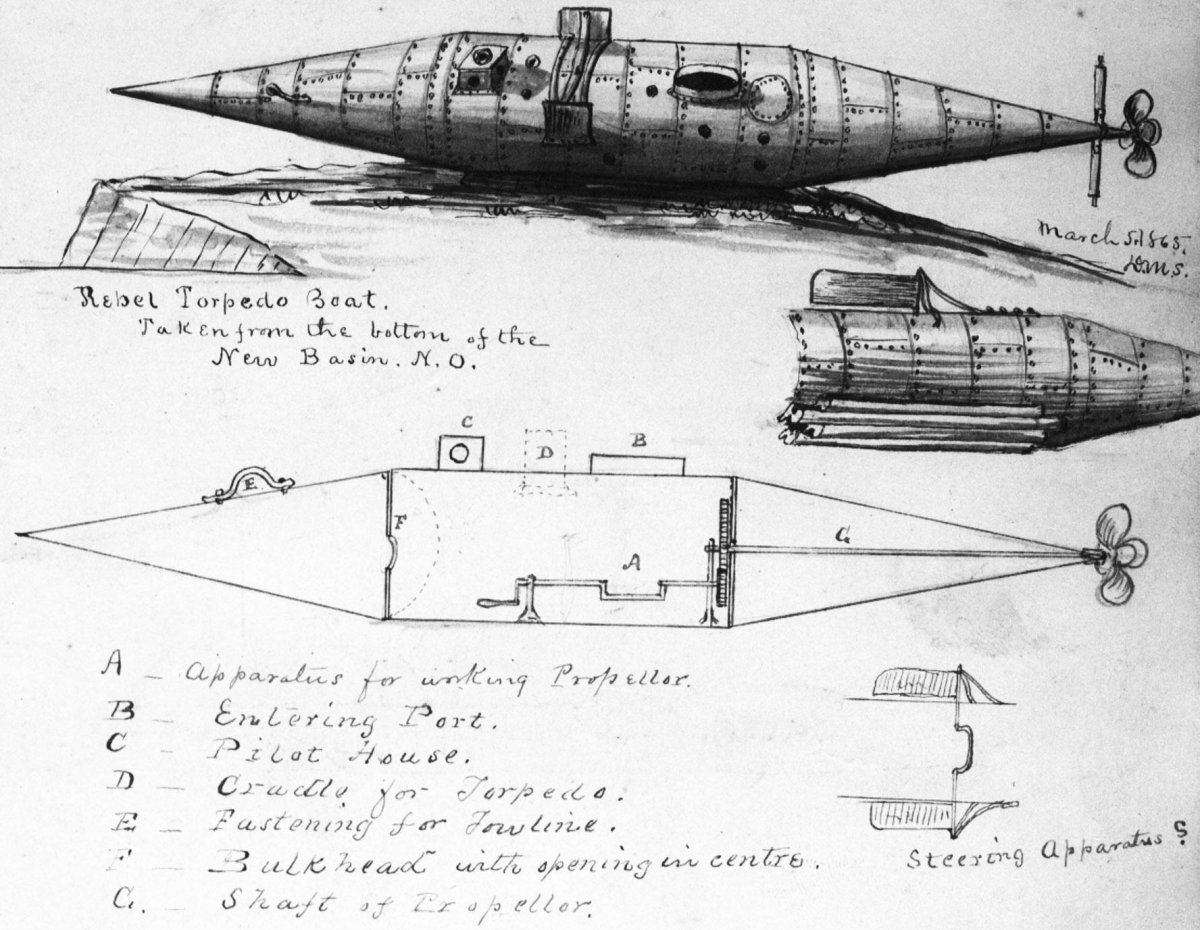 March 5. 1865.
D.M.S.
Rebel Torpedo Boat.
Taken from the bottom of the
New Basin. N. O.
C
D
B
E
F
G
A
A _ Apparatus for working Propellor.
B _ Entering Port.
C _ Pilot House.
D _ Cradle for Torpedo.
E _ Fastening for Towline.
F _ Bulkhead with opening in centre.
G. _ Shaft of Propellor.
Steering Apparatus ?